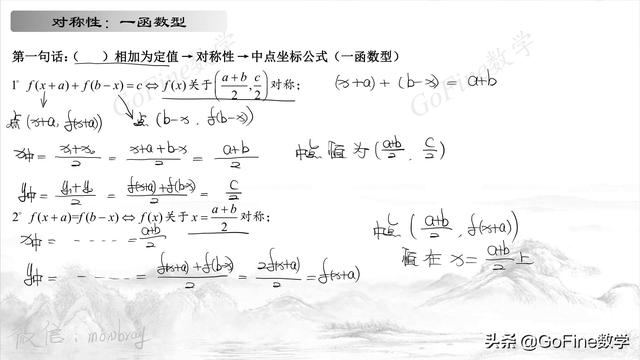 对称性：一函数型
第一句话：（ ）相加为定值→对称性→中点坐标公式（一函数型）
1° f(x+a)+f(b−x)=c⇔f(x)关于((a+b)/2, c/2)对称；
(x+a)+(b−x)=a+b
点(x+a, f(x+a)) 点(b−x, f(b−x))
x中= = (x+a+b−x)/2 = (a+b)/2
中点恒为((a+b)/2, c/2)
y中= = (f(x+a)+f(b−x))/2 = c/2
2° f(x+a)=f(b−x)⇔f(x)关于x=(a+b)/2对称；
x中= - - - - - =(a+b)/2
中点((a+b)/2, f(x+a))
恒在x=(a+b)/2上
y中= - - - - - = (f(x+a)+f(b−x))/2 = 2f(x+a)/2 =f(x+a)
GoFine数学
GoFine数学
微信：
头条 @GoFine数学